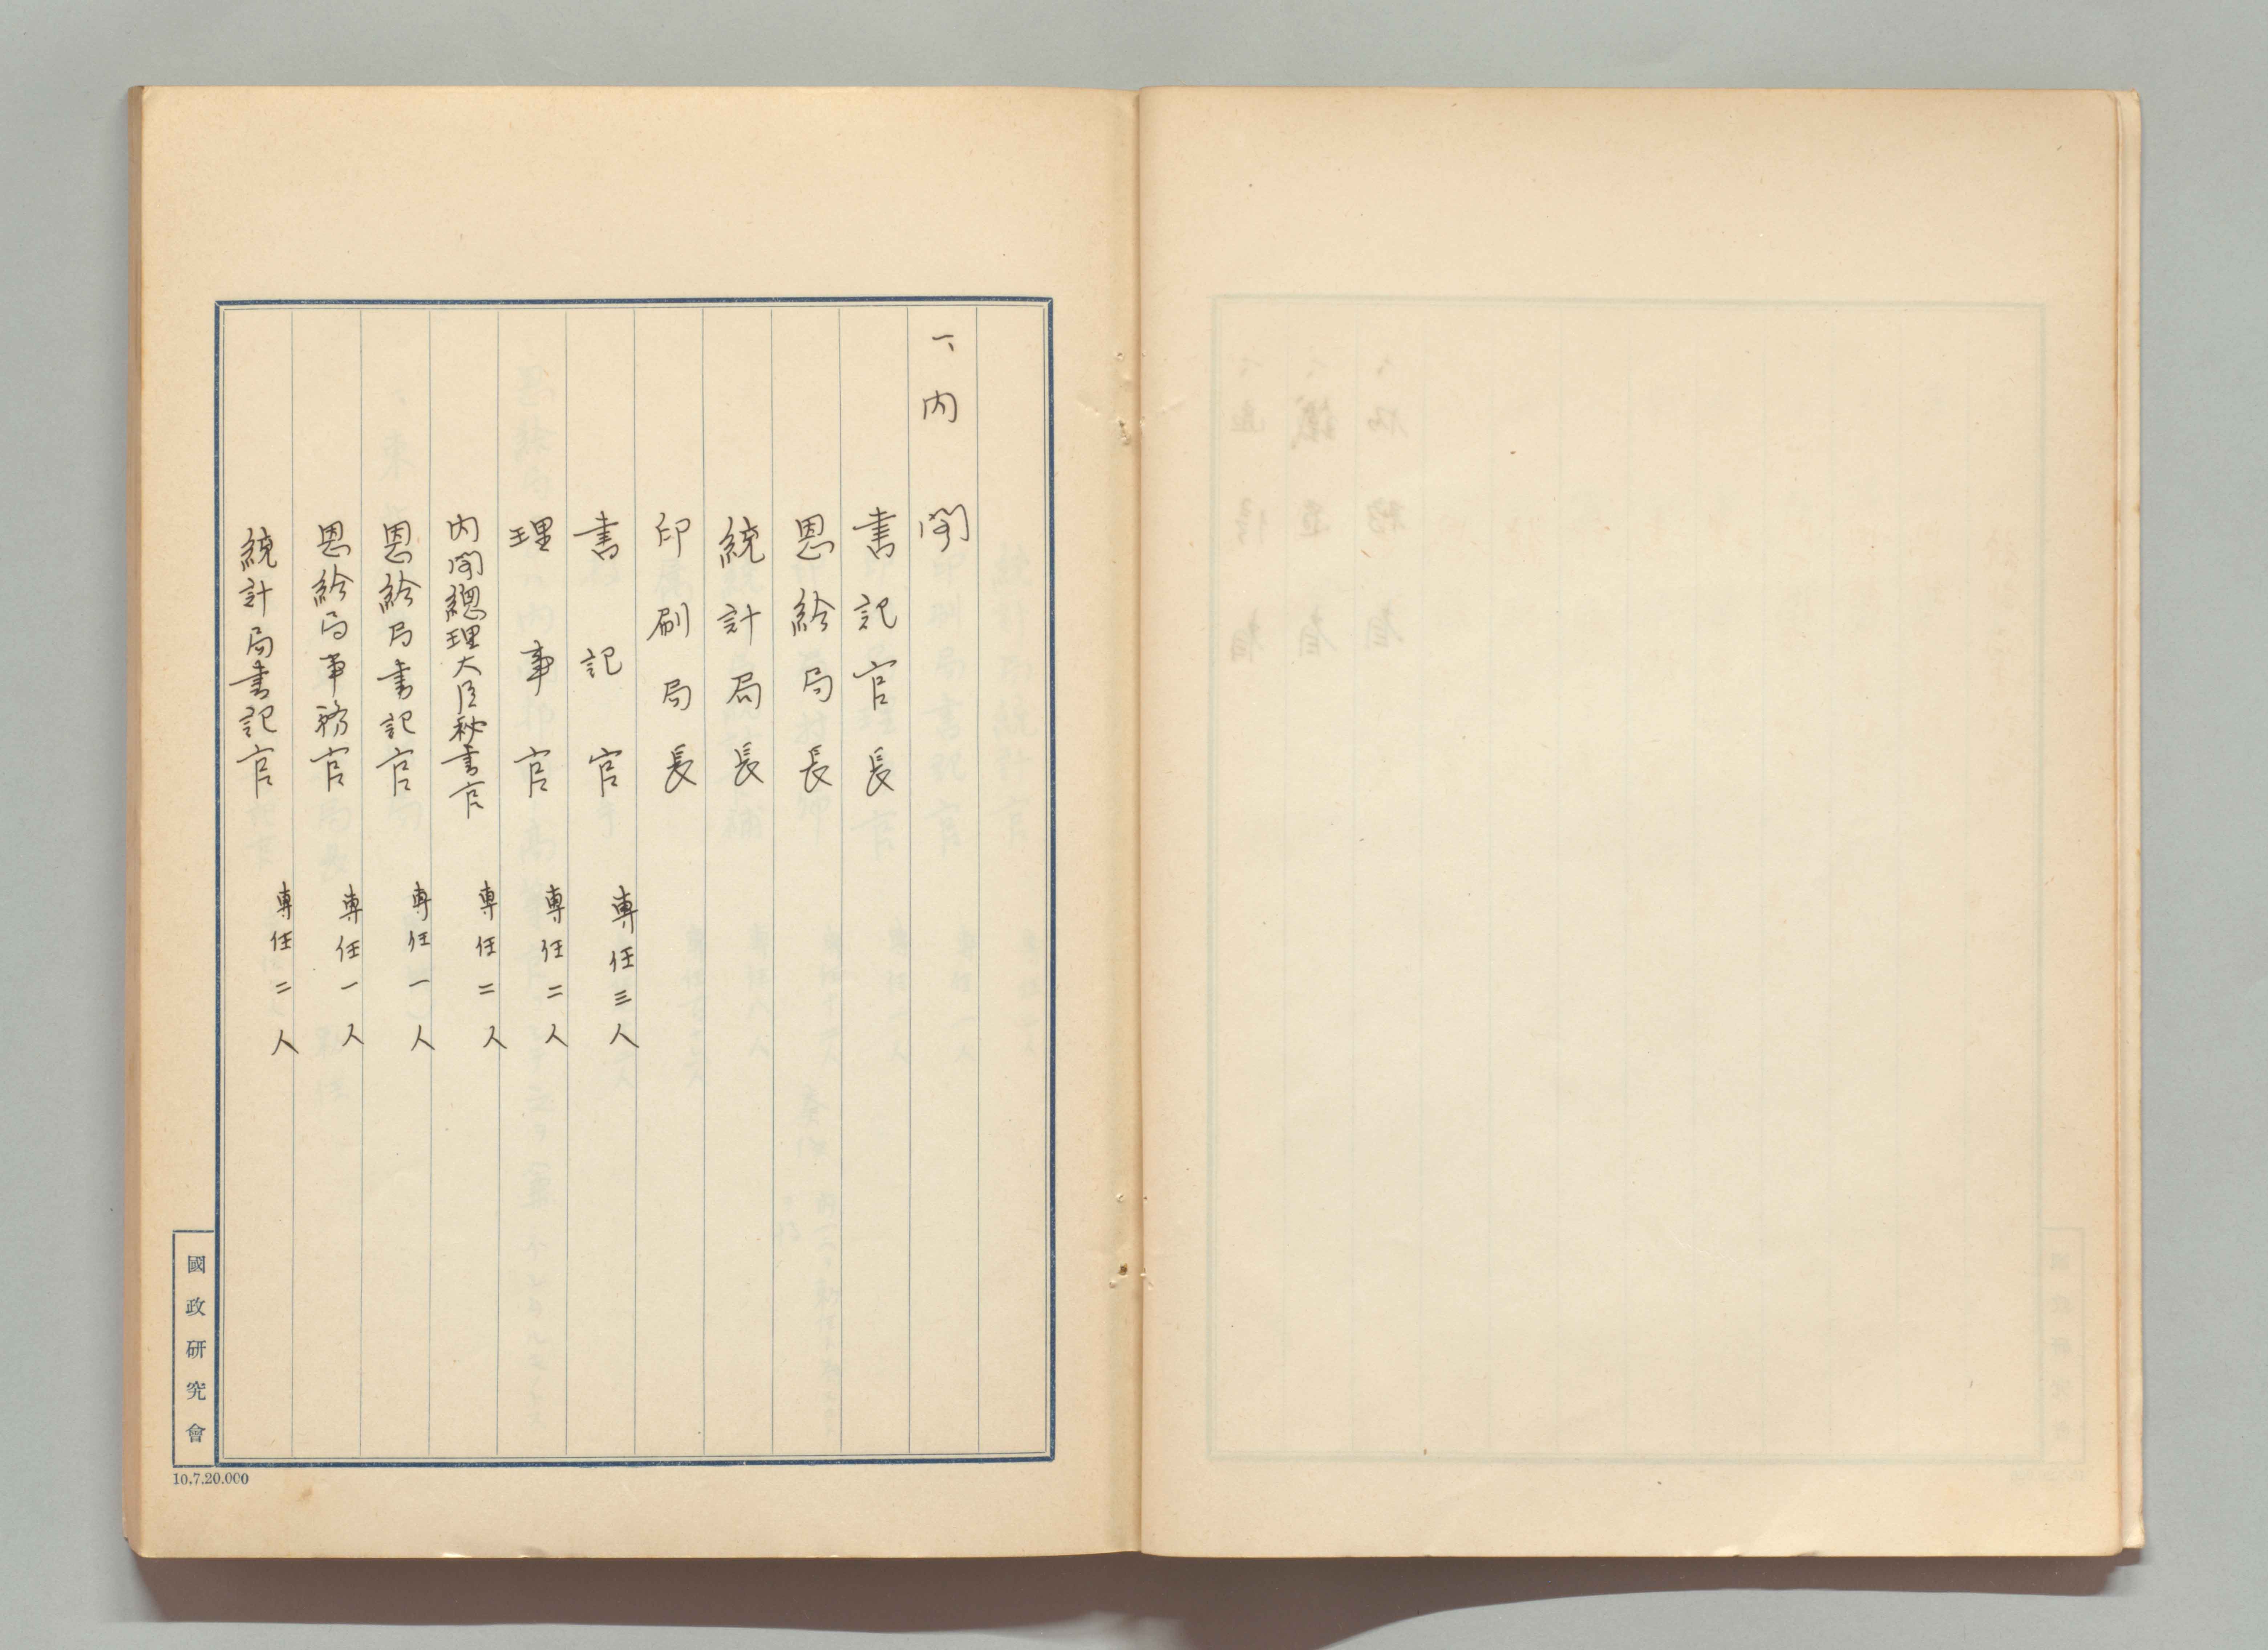 一、内閣
書記官長
恩給局長
統計局長
印刷局長
書記官 専任三人
理事官 専任二人
内閣總理大臣秘書官 専任二人
恩給局書記官 専任一人
恩給局事務官 専任一人
統計局書記官 専任二人
國政研究會
10.7.20.000